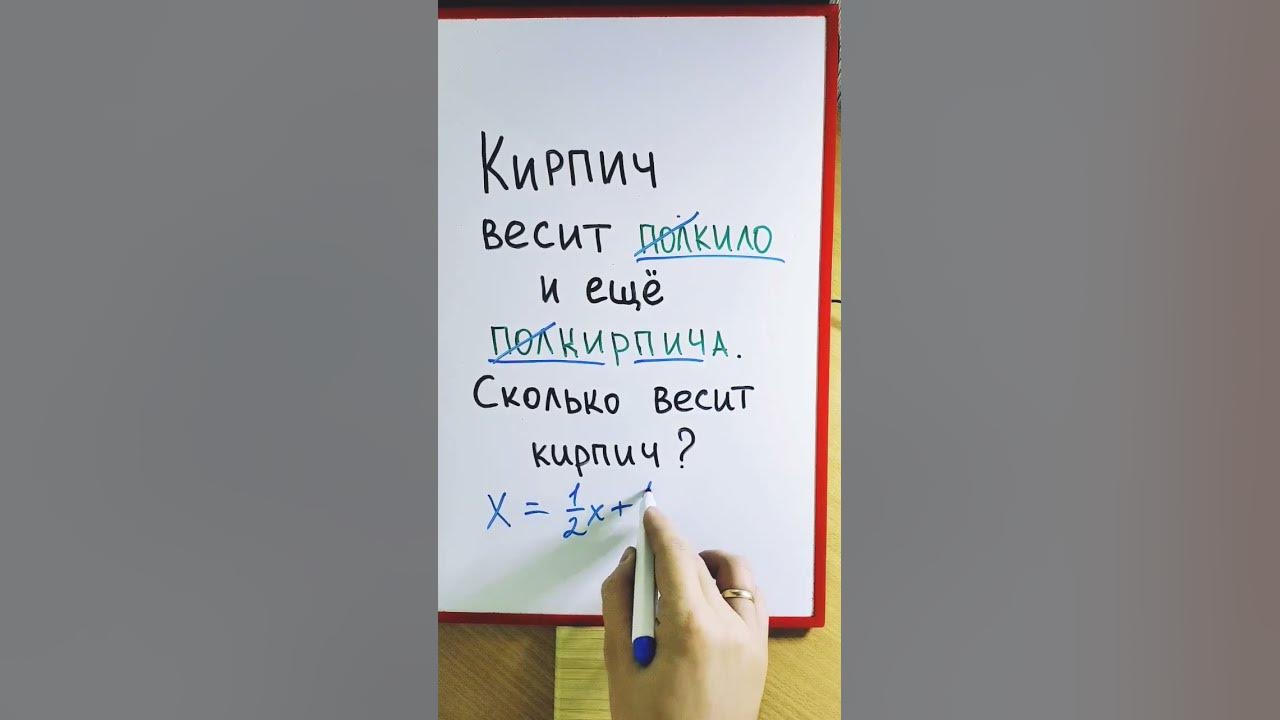 Кирпич
весит полкило
и ещё
полкирпича.
Сколько весит
кирпич?
X = 1/2 x +